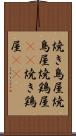 焼き鳥屋焼
鳥屋焼鶏屋
焼き鶏
屋